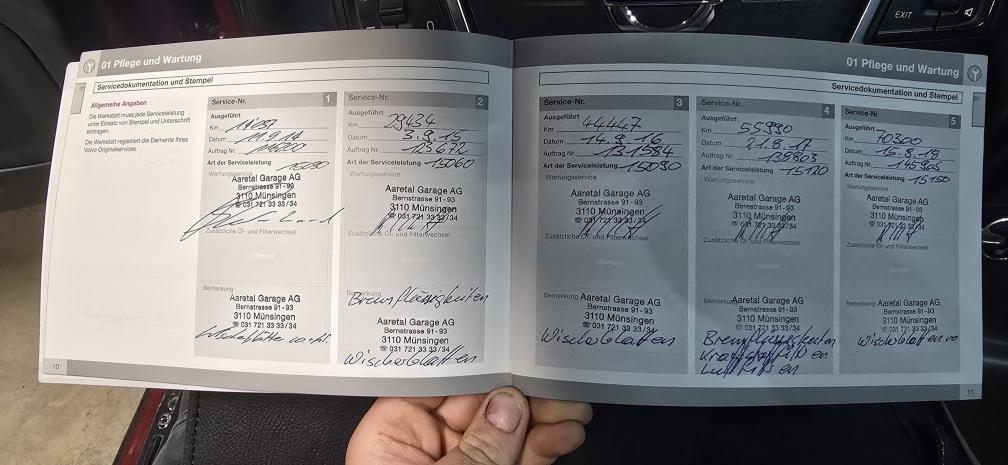 01 Pflege und Wartung
Servicedokumentation und Stempel
Allgemeine Angaben
Die Werkstatt muss jede Serviceleistung
unter Einsatz von Stempel und Unterschrift
eintragen.
Die Werkstatt registriert die Elemente Ihres
Volvo Originalservices.
Service-Nr. 1
Ausgeführt
Km
Datum 11.9.14
Auftrag Nr.
Art der Serviceleistung
Wartungsservice
Aaretal Garage AG
Bernstrasse 91 - 93
3110 Münsingen
☏ 031 721 33 33/34
Zusätzliche Öl- und Filterwechsel
Stempel
Bemerkung
Aaretal Garage AG
Bernstrasse 91 - 93
3110 Münsingen
☏ 031 721 33 33/34
Service-Nr. 2
Ausgeführt
Km 29434
Datum 3.9.15
Auftrag Nr. 125672
Art der Serviceleistung 15060
Wartungsservice
Aaretal Garage AG
Bernstrasse 91 - 93
3110 Münsingen
☏ 031 721 33 33/34
Zusätzliche Öl- und Filterwechsel
Bemerkung
Bremflüssigkeiten
Aaretal Garage AG
Bernstrasse 91 - 93
3110 Münsingen
☏ 031 721 33 33/34
Wischerblatten
10
01 Pflege und Wartung
Servicedokumentation und Stempel
Service-Nr. 3
Ausgeführt
Km 44447
Datum 14.9.16
Auftrag Nr.
Art der Serviceleistung 15090
Wartungsservice
Aaretal Garage AG
Bernstrasse 91 - 93
3110 Münsingen
☏ 031 721 33 33/34
Zusätzliche Öl- und Filterwechsel
Bemerkung
Aaretal Garage AG
Bernstrasse 91 - 93
3110 Münsingen
☏ 031 721 33 33/34
Wischerblatten
Service-Nr. 4
Ausgeführt
Km 55990
Datum 21.8.17
Auftrag Nr. 139803
Art der Serviceleistung 15120
Wartungsservice
Aaretal Garage AG
Bernstrasse 91 - 93
3110 Münsingen
☏ 031 721 33 33/34
Zusätzliche Öl- und Filterwechsel
Bemerkung
Aaretal Garage AG
Bernstrasse 91 - 93
3110 Münsingen
☏ 031 721 33 33/34
Bremflüssigkeiten
Service-Nr. 5
Ausgeführt
Km 70300
Datum
Auftrag Nr. 145905
Art der Serviceleistung 15150
Wartungsservice
Aaretal Garage AG
Bernstrasse 91 - 93
3110 Münsingen
☏ 031 721 33 33/34
Zusätzliche Öl- und Filterwechsel
Bemerkung
Aaretal Garage AG
Bernstrasse 91 - 93
3110 Münsingen
☏ 031 721 33 33/34
Wischerblatten vo
11
EXIT